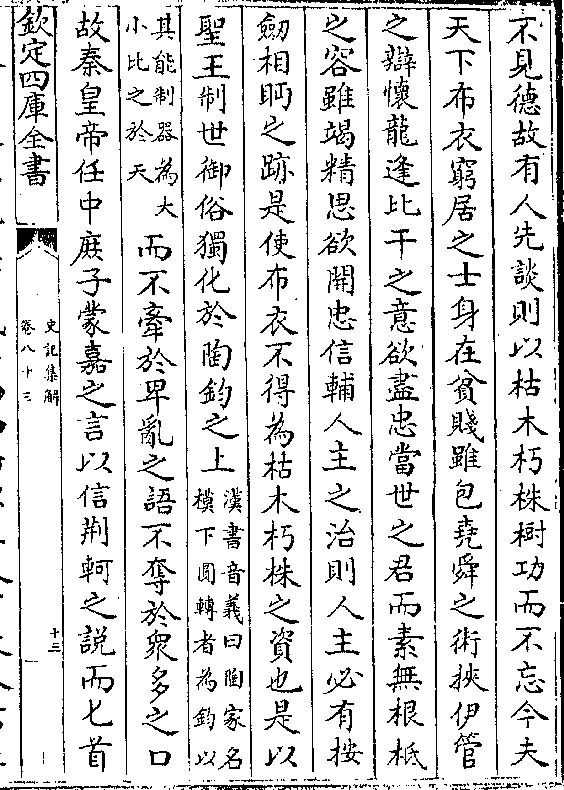 不見德故有人先談則以枯木朽株樹功而不忘今夫
天下布衣窮居之士身在貧賤雖包堯舜之術挾伊管
之辯懷龍逢比干之意欲盡忠當世之君而素無根柢
之容雖竭精思欲開忠信輔人主之治則人主必有按
劒相眄之跡是使布衣不得為枯木朽株之資也是以
聖王制世御俗獨化於陶鈞之上
漢書音義曰陶家名
模下圓轉者為鈞以
其能制器為大
小比之於天
而不牽於卑亂之語不奪於衆多之口
故秦皇帝任中庶子蒙嘉之言以信荆軻之説而匕首
欽定四庫全書
史記集解
卷八十三
十三